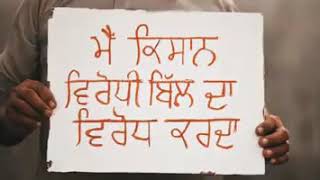 ਮੈਂ ਕਿਸਾਨ
ਵਿਰੋਧੀ ਬਿੱਲ ਦਾ
ਵਿਰੋਧ ਕਰਦਾ